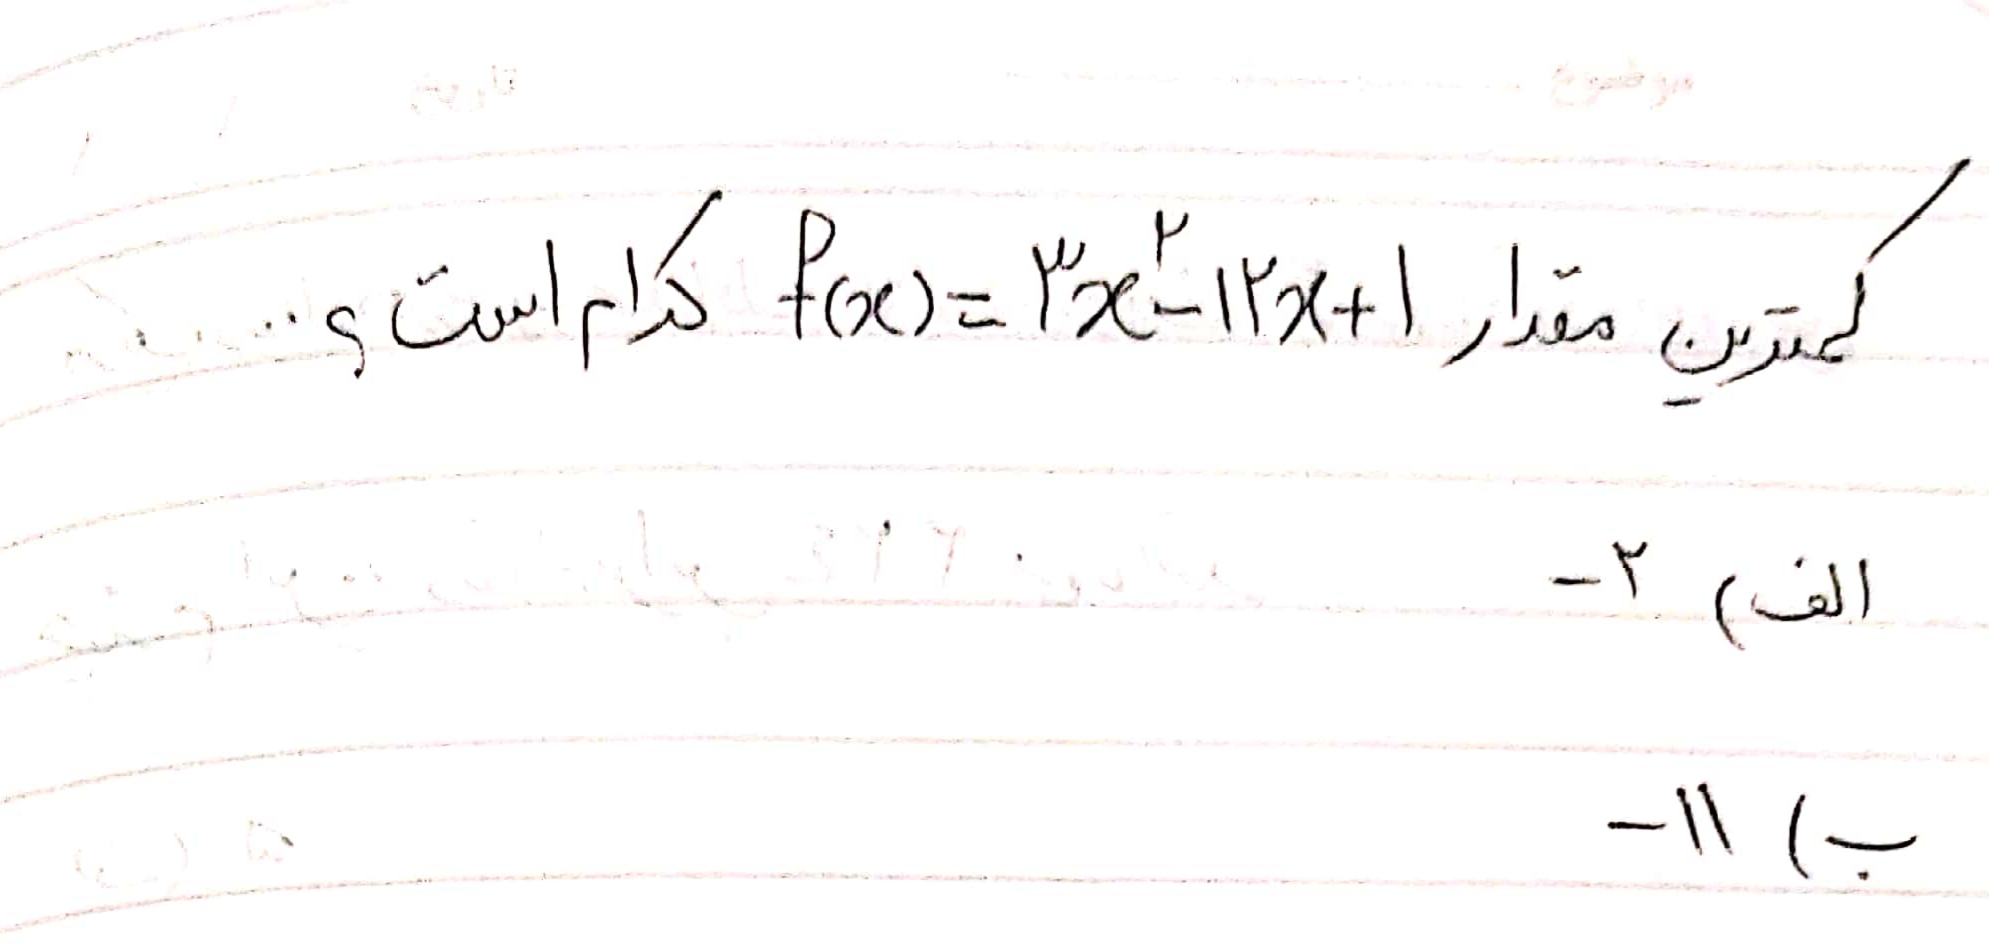 موضوع تاریخ / /
کمترین مقدار f(x) = ۳x^۲ - ۱۲x + ۱ کدام است؟
الف) -۲
ب) -۱۱